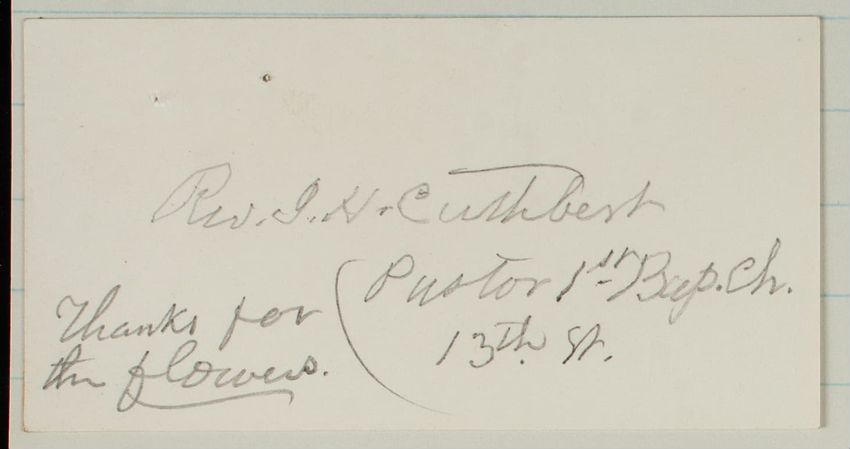 Rev. J. H. Cuthbert
Pastor 1st Bap. Ch.
13th St.
Thanks for
the flowers.